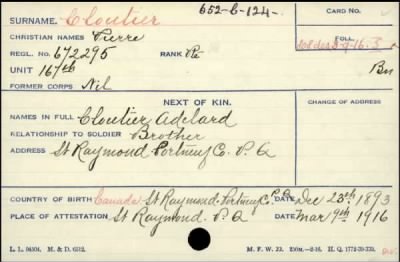 652-C-124-
SURNAME. Cloutier CARD NO.
CHRISTIAN NAMES Pierre
FOLL.
REGL. No. 672295 RANK Pte 3-9-16.
UNIT 167th
FORMER CORPS Nil
NEXT OF KIN. CHANGE OF ADDRESS
NAMES IN FULL Cloutier Adelard
RELATIONSHIP TO SOLDIER Brother
ADDRESS St Raymond Portneuf Co. P.Q
COUNTRY OF BIRTH Canada St Raymond. Portneuf Co P.Q DATE Dec 23rd 1893
PLACE OF ATTESTATION St Raymond. P.Q DATE Mar 9th 1916
M. F. W. 22. H. Q. 1772-39-339.